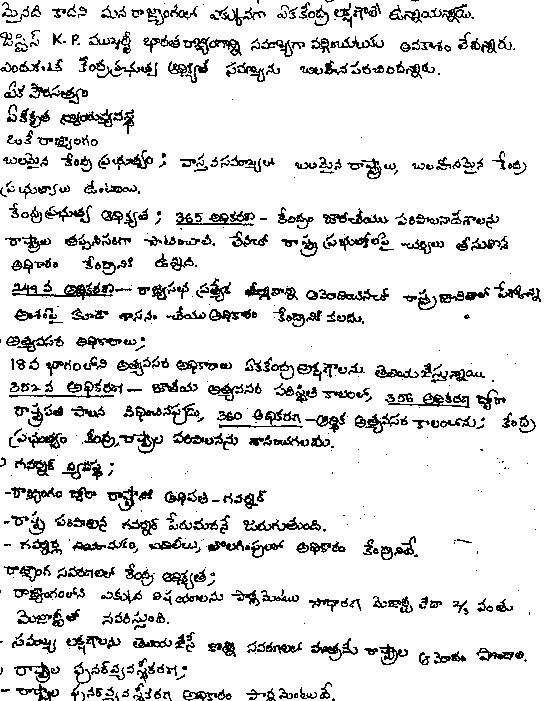 మైనది కాదని మన రాజ్యాంగంలో ఎక్కువగా ఏకకేంద్ర లక్షణాలే ఉన్నాయన్నాడు.
జస్టిస్ K.P. ముఖర్జీ భారత రాజ్యాంగాన్ని సమాఖ్యగా వర్ణించుటకు అవకాశం లేదన్నారు.
ఎందుకంటే కేంద్ర ప్రభుత్వ ఆధిక్యత సమాఖ్యను బలహీన పరచిందన్నారు.
ఏక పౌరసత్వం
ఏకీకృత న్యాయవ్యవస్థ
ఒకే రాజ్యాంగం
బలమైన కేంద్ర ప్రభుత్వం ; వాస్తవ సమాఖ్యలో బలమైన రాష్ట్రాలు, బలహీనమైన కేంద్ర
ప్రభుత్వాలు ఉంటాయి.
కేంద్ర ప్రభుత్వ ఆధిక్యత ; 365 అధికరణ - కేంద్రం జారీచేయు పరిపాలనాదేశాలను
రాష్ట్రాలు తప్పనిసరిగా పాటించాలి. లేనిచో రాష్ట్ర ప్రభుత్వాలపై చర్యలు తీసుకొనే
అధికారం కేంద్రానికి ఉన్నది.
249 వ అధికరణ - రాజ్యసభ ప్రత్యేక తీర్మానాన్ని ఆమోదించినచో రాష్ట్ర జాబితాలో పేర్కొన్న
అంశంపై కూడా శాసనం చేయు అధికారం కేంద్రానికి కలదు.
- అత్యవసర అధికారాలు ;
18 వ భాగంలోని అత్యవసర అధికారాలు ఏకకేంద్ర లక్షణాలను తెలియచేస్తున్నాయి
352 వ అధికరణ - జాతీయ అత్యవసర పరిస్థితి కాలంలో, 356 అధికరణ ద్వారా
రాష్ట్రపతి పాలన విధించినప్పుడు, 360 అధికరణ - ఆర్థిక అత్యవసర కాలంలోను ; కేంద్ర
ప్రభుత్వం కేంద్ర, రాష్ట్రాల పరిపాలనను శాసించగలదు.
గవర్నర్ వ్యవస్థ ;
- రాజ్యాంగం ద్వారా రాష్ట్రంలో అధిపతి - గవర్నర్
- రాష్ట్ర పరిపాలన గవర్నర్ పేరుమీదనే జరుగుతుంది.
- గవర్నర్ల నియామకం, బదిలీలు, తొలగింపులలో అధికారం కేంద్రానిదే.
రాజ్యాంగ సవరణలలో కేంద్ర ఆధిక్యత ;
- రాజ్యాంగంలోని ఎక్కువ విషయాలను పార్లమెంటు సాధారణ మెజార్టీ లేదా 2/3 వంతు
మెజార్టీతో సవరిస్తుంది.
- సమాఖ్య లక్షణాలను తెలియచేసే కొన్ని సవరణలలో మాత్రమే రాష్ట్రాల ఆమోదం పొందాలి.
రాష్ట్రాల పునర్వ్యవస్థీకరణ ;
- రాష్ట్రాల పునర్వ్యవస్థీకరణ అధికారం పార్లమెంటుదే.